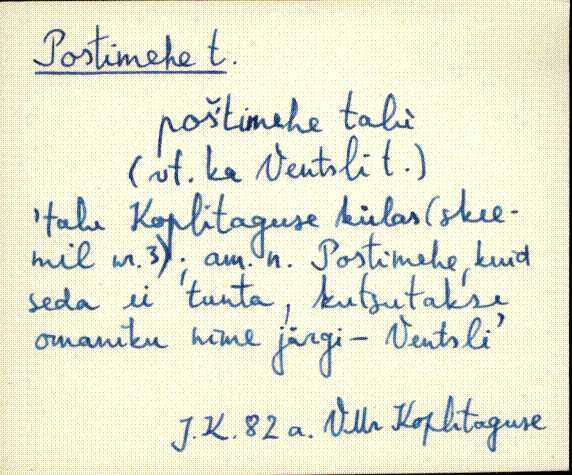 Postimehe t.
poštimehe talu
(vt. ka Ventsli t.)
'talu Koplitaguse külas (skee-
mil nr. 3); am. n. Postimehe, kuid
seda ei tunta, kutsutakse
omaniku nime järgi – Ventsli'
J.K. 82 a. VMr Koplitaguse